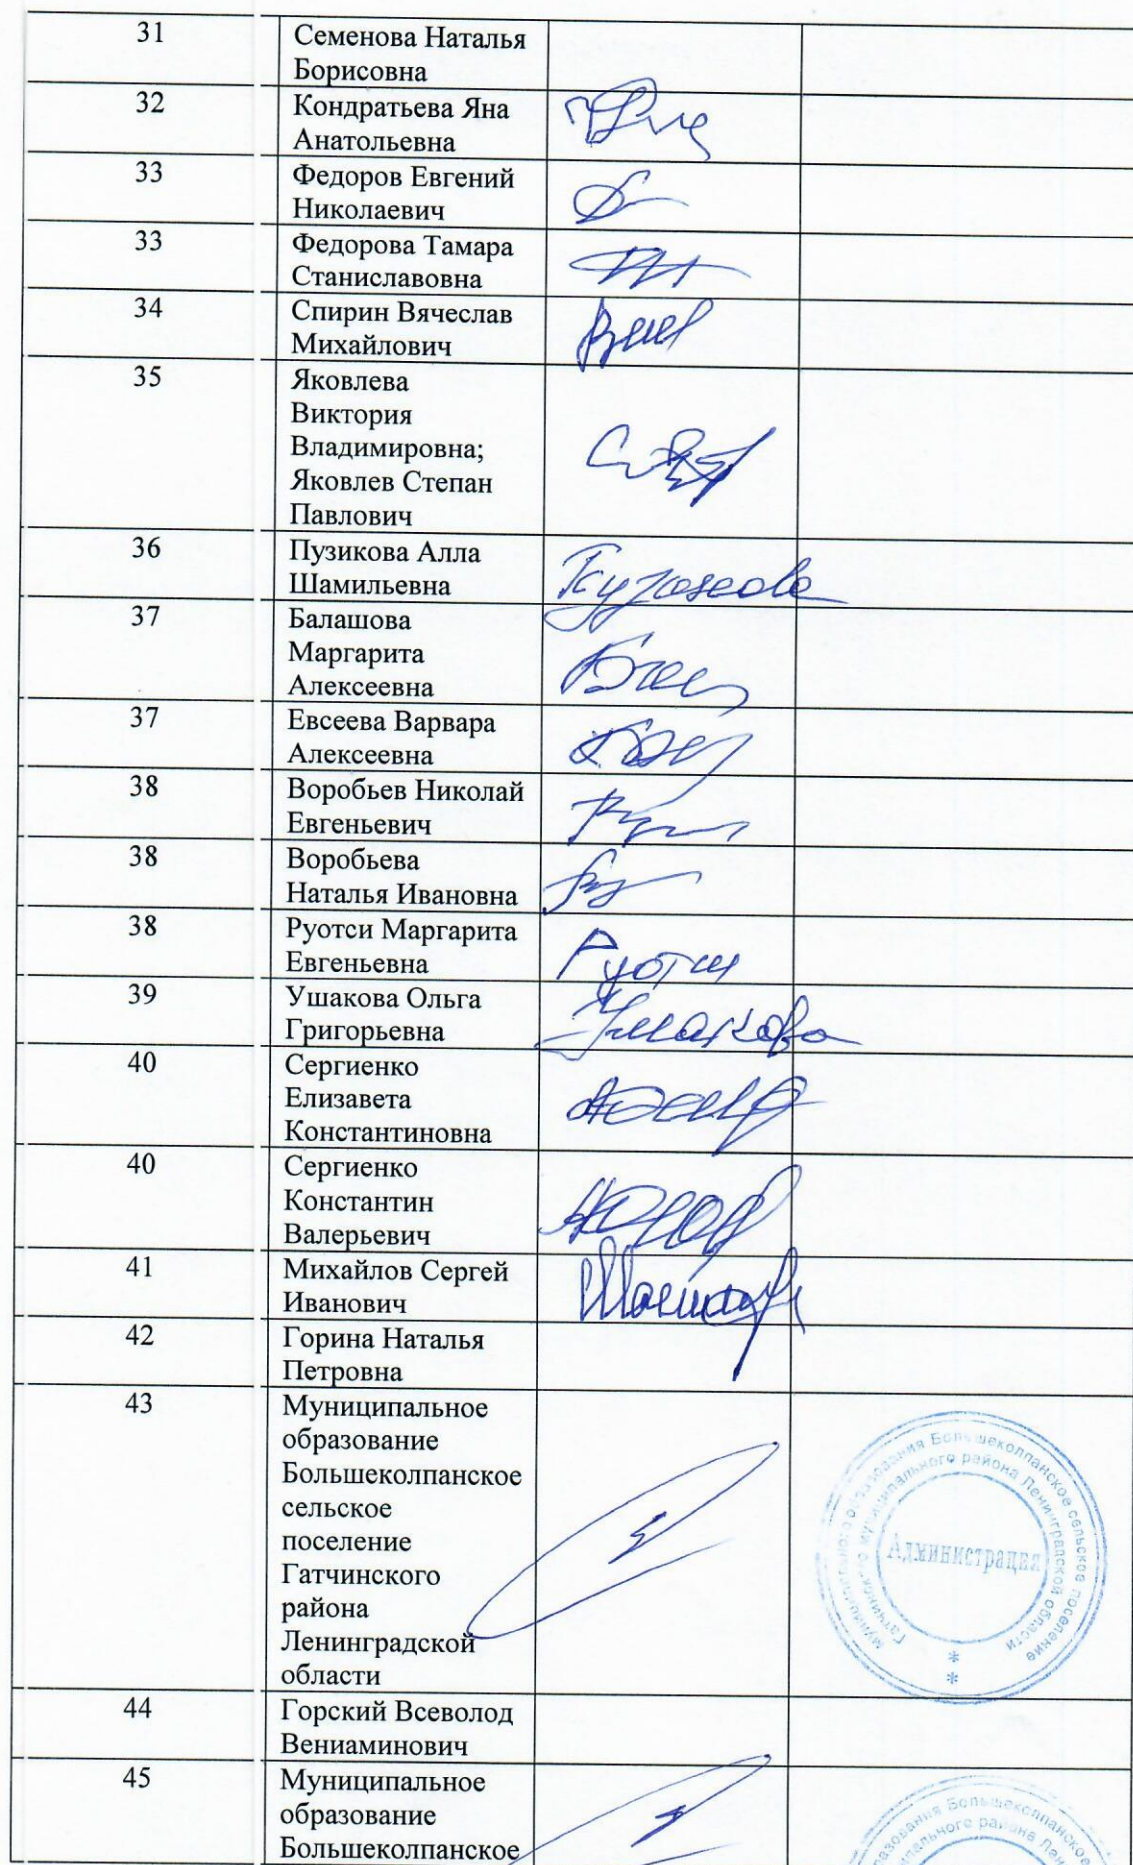 31
Семенова Наталья
Борисовна
32
Кондратьева Яна
Анатольевна
33
Федоров Евгений
Николаевич
33
Федорова Тамара
Станиславовна
34
Спирин Вячеслав
Михайлович
35
Яковлева
Виктория
Владимировна;
Яковлев Степан
Павлович
36
Пузикова Алла
Шамильевна
37
Балашова
Маргарита
Алексеевна
37
Евсеева Варвара
Алексеевна
38
Воробьев Николай
Евгеньевич
38
Воробьева
Наталья Ивановна
38
Руотси Маргарита
Евгеньевна
Руотси
39
Ушакова Ольга
Григорьевна
Ушакова
40
Сергиенко
Елизавета
Константиновна
40
Сергиенко
Константин
Валерьевич
41
Михайлов Сергей
Иванович
42
Горина Наталья
Петровна
43
Муниципальное
образование
Большеколпанское
сельское
поселение
Гатчинского
района
Ленинградской
области
Муниципального образования Большеколпанское сельское поселение
Гатчинского муниципального района Ленинградской области
Администрация
* *
44
Горский Всеволод
Вениаминович
45
Муниципальное
образование
Большеколпанское